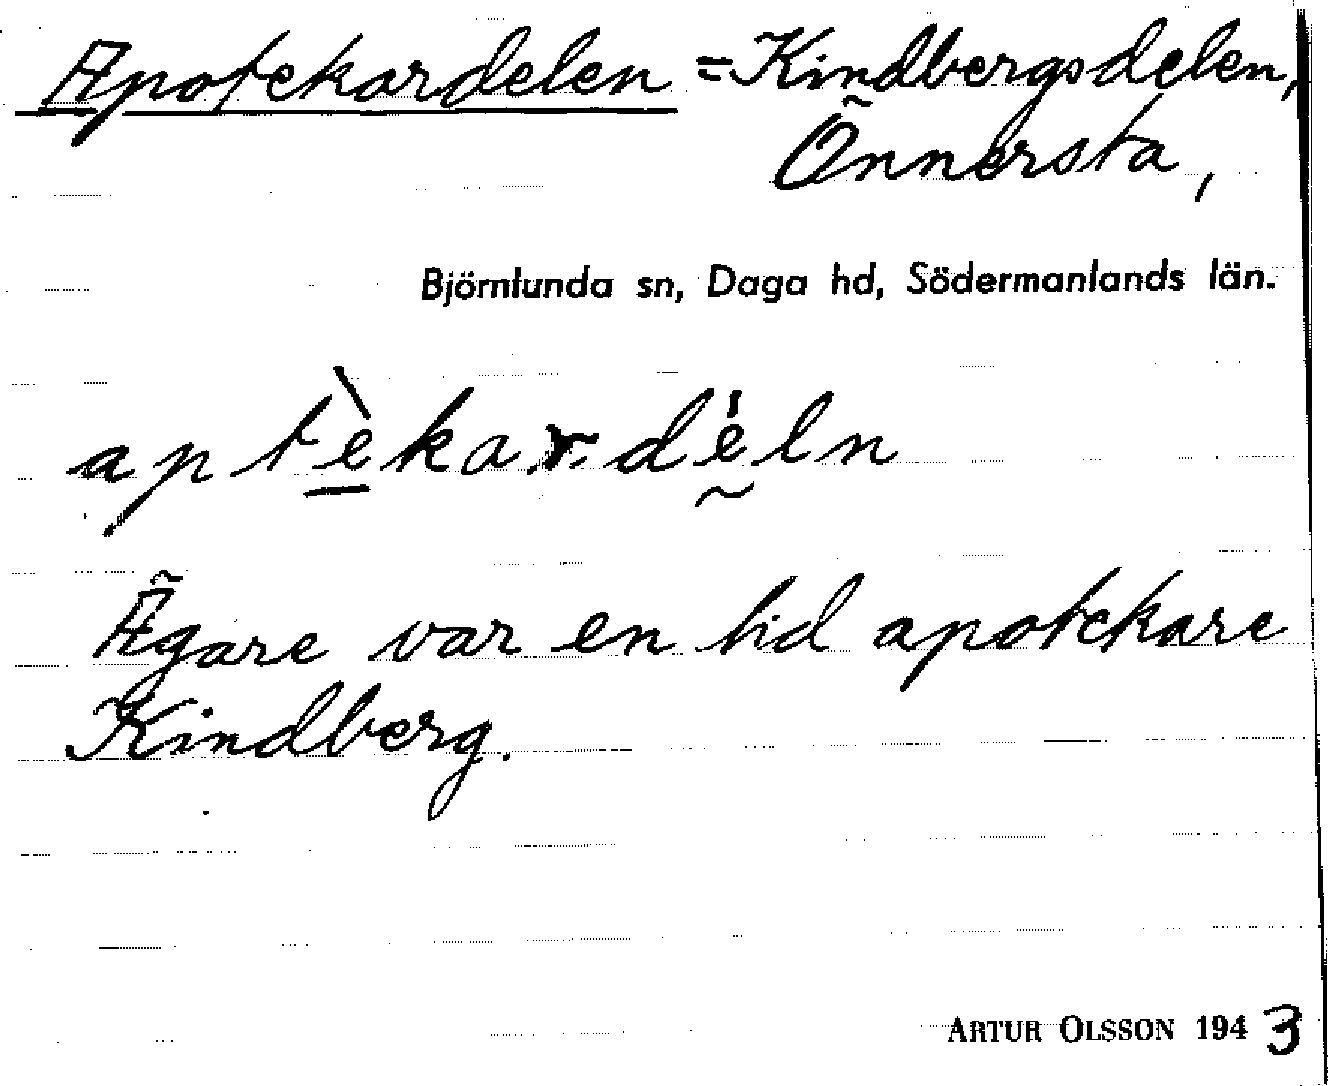 Apotekardelen = Kindbergsdelen,
Önnersta,
Björnlunda sn, Daga hd, Södermanlands län.
aptèkardéln
Ägare var en tid apotekare
Kindberg.
ARTUR OLSSON 1943